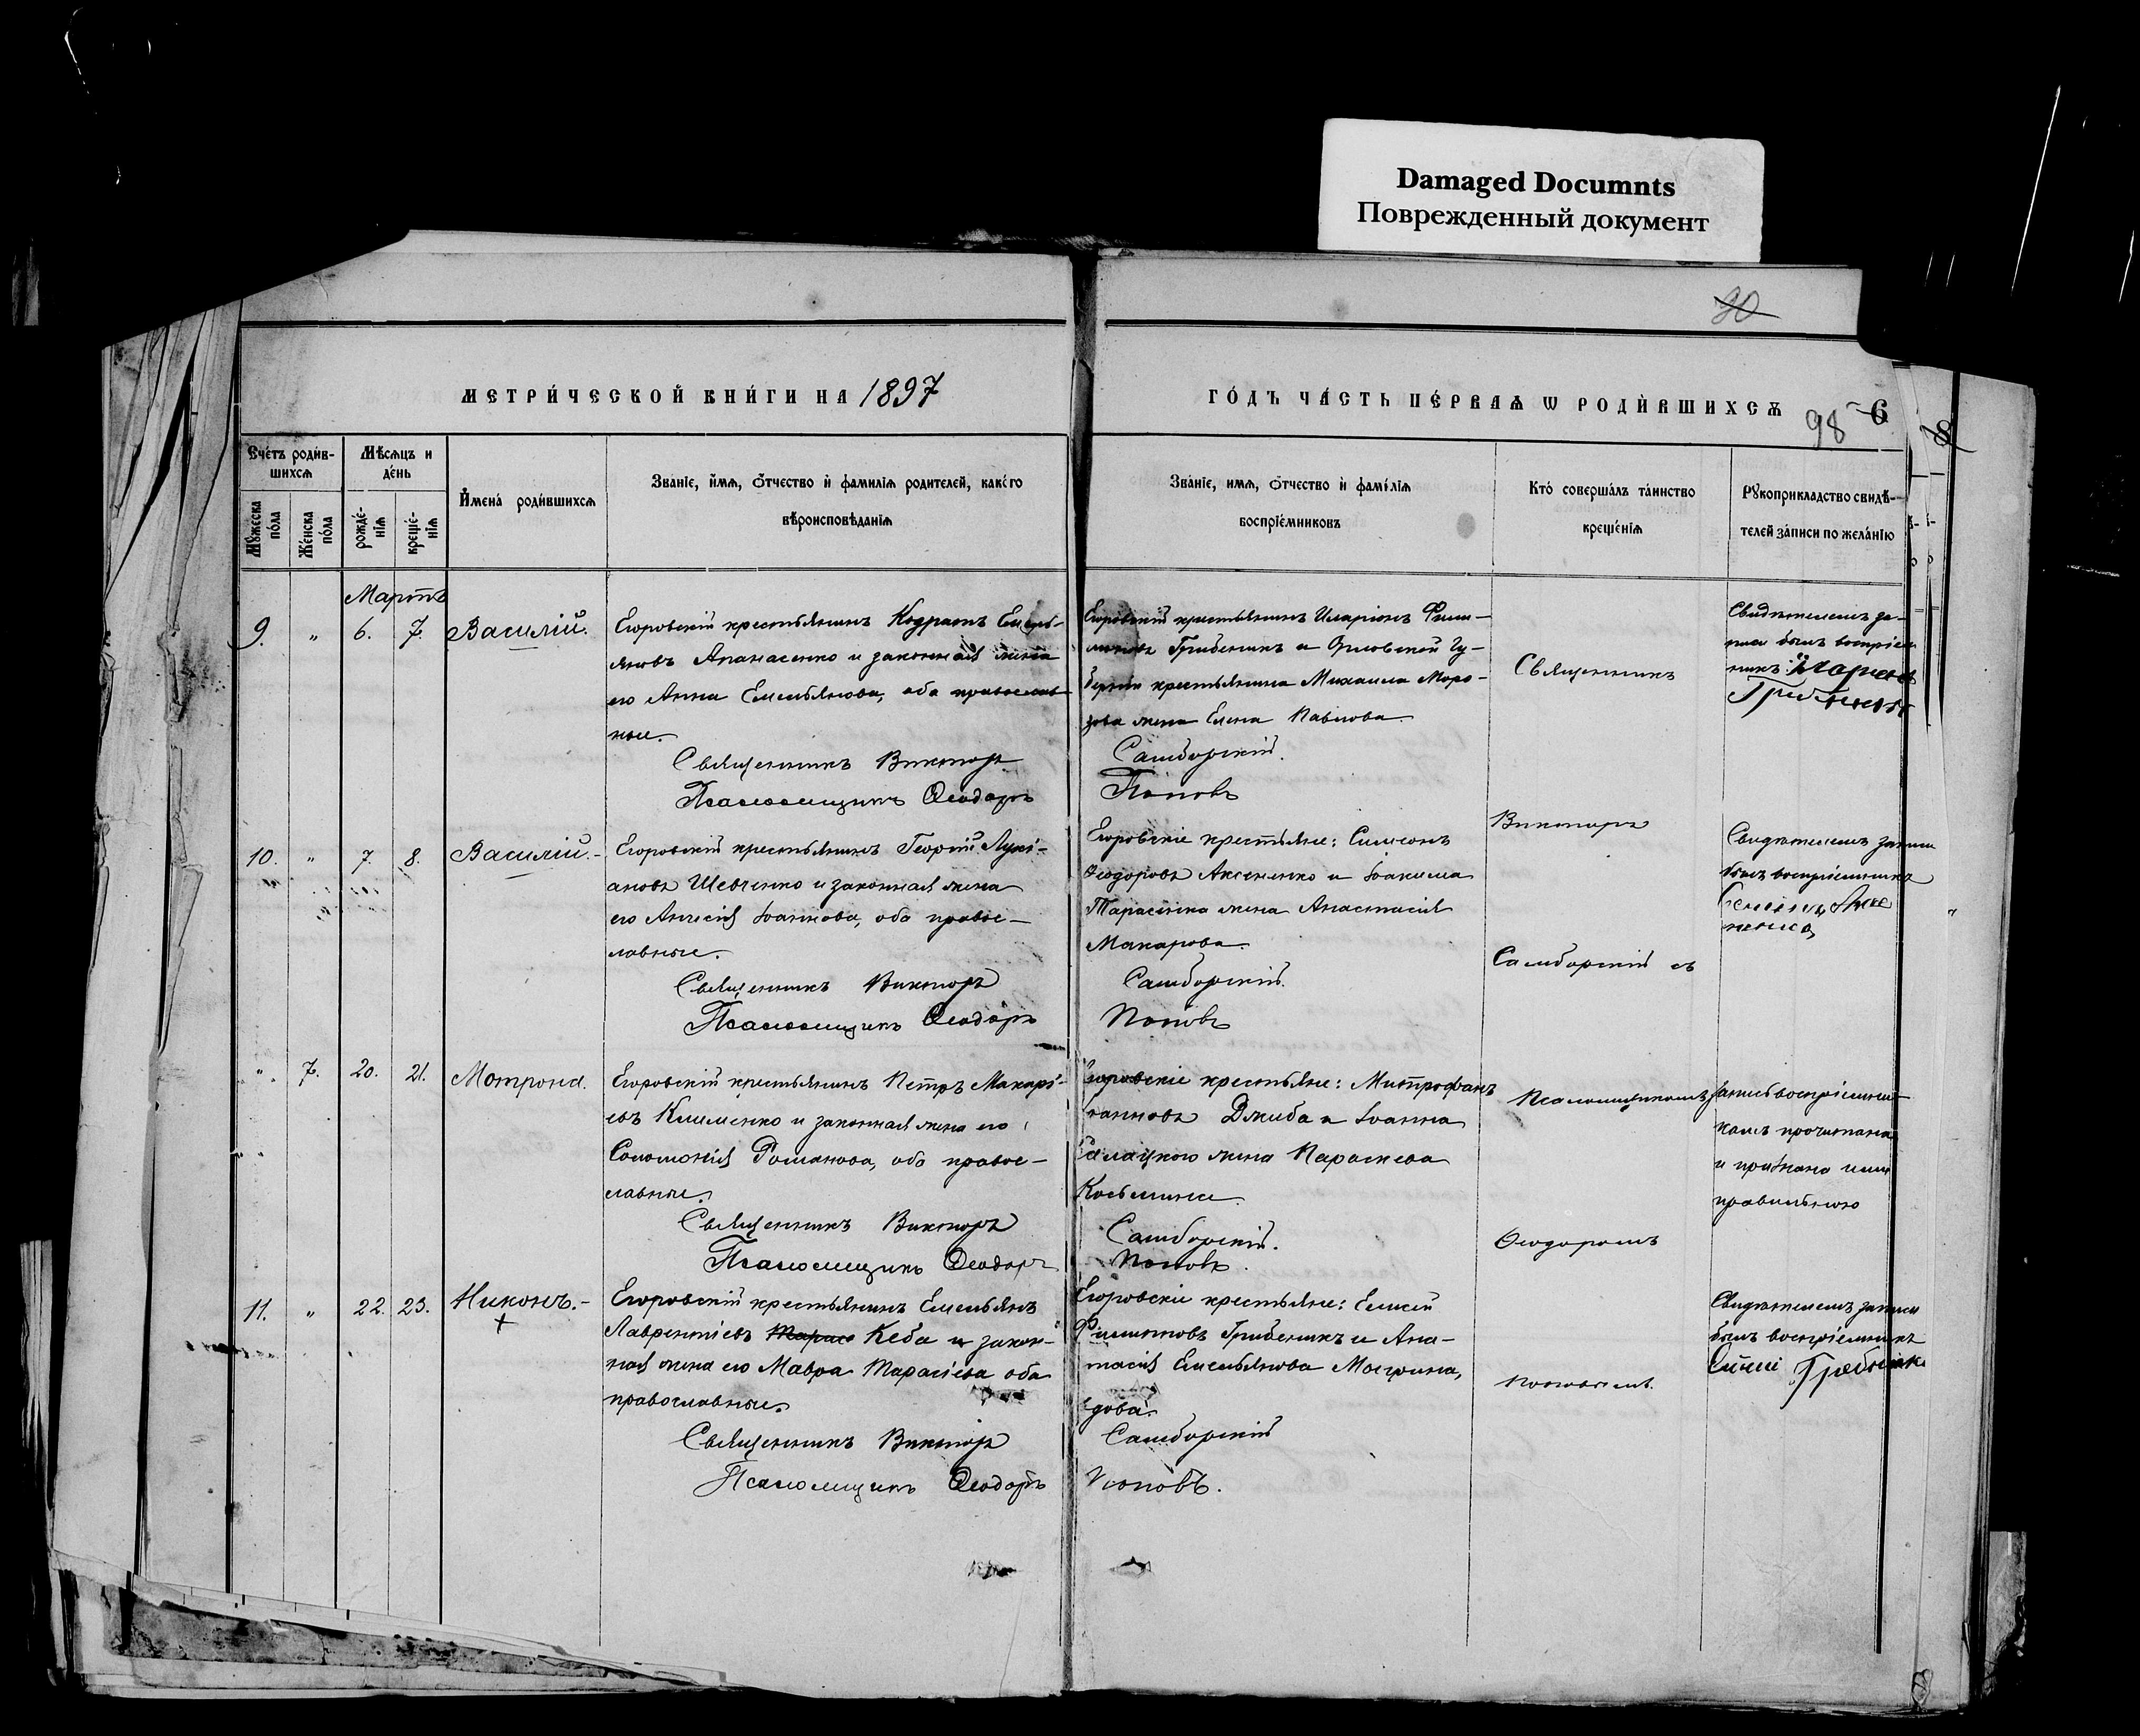 Damaged Documnts
Поврежденный документ
30
МЕТРИ́ЧЕСКОЙ КНИ́ГИ НА 1897
ГО́ДЪ ЧА́СТЬ ПЕ́РВАѦ Ѡ РОДИ́ВШИХСѦ
98
6
8
Счéтъ роди́в-
шихсѧ
Мѣ́сѧцъ и
де́нь
Мꙋ́жеска
по́ла
Же́нска
по́ла
рожде́-
нїѧ
креще́-
нїѧ
И҆мена̀ роди́вшихсѧ
Зва́нїе, и҆́мѧ, ѻ҆́тчество и҆ фами́лїѧ роди́телей, како́гѡ
вѣроисповѣ́данїѧ
Зва́нїе, и҆́мѧ, ѻ҆́тчество и҆ фами́лїѧ
воспрїе́мниковъ
Кто̀ соверша́лъ та́инство
креще́нїѧ
Рꙋкоприкла́дство свидѣ́-
телей за́писи по жела́нїю
Мартъ
9. " 6. 7. Василій.
Егоровскій крестьянинъ Кодратъ Емель-
яновъ Апанасенко и законная жена
его Анна Емельянова, оба православ-
ные.
Священникъ Викторъ
Псаломщикъ Ѳеодоръ
Егоровскій крестьянинъ Иларіонъ Фили-
моновъ Грибеникъ и Орловской Гу-
берніи крестьянина Михаила Моро-
зова жена Елена Павлова.
Самборскій.
Поповъ
Священникъ
Свидѣтелемъ за-
писи былъ воспріем
никъ:
10. " 7. 8. Василій.
Егоровскій крестьянинъ Георгій Лукі-
ановъ Шевченко и законная жена
его Анисія Іоаннова, оба правос-
лавные.
Священникъ Викторъ
Псаломщикъ Ѳеодоръ
Егоровскіе крестьяне: Симеонъ
Ѳеодоровъ Аксененко и Іоакима
Тарасенка жена Анастасія
Макарова.
Самборскій.
Поповъ
Викторъ
Самборскій съ
Свидѣтелемъ записи
былъ воспріемникъ
". 7. 20. 21. Мотрона.
Егоровскій крестьянинъ Петръ Макарі-
евъ Клименко и законная жена его
Соломонія Романова, оба правос-
лавные.
Священникъ Викторъ
Псаломщикъ Ѳеодоръ
Егоровскіе крестьяне: Митрофанъ
Іоанновъ Джиба и Іоанна
жена Параскева
Косьмина.
Самборскій.
Поповъ.
Псаломщикомъ
Ѳеодоромъ
Запись воспріемни-
камъ прочитана
и признана ими
правильною
11. " 22. 23. Никонъ.
Егоровскій крестьянинъ Емельянъ
Лаврентіевъ Кеба и закон-
ная жена его Мавра Тарасіева оба
православные.
Священникъ Викторъ
Псаломщикъ Ѳеодоръ
Егоровскіе крестьяне: Елисей
Филиповъ Грибеникъ и Ана-
стасія Емельянова
вдова.
Самборскій
Поповъ.
Поповымъ.
Свидѣтелемъ записи
былъ воспріемникъ